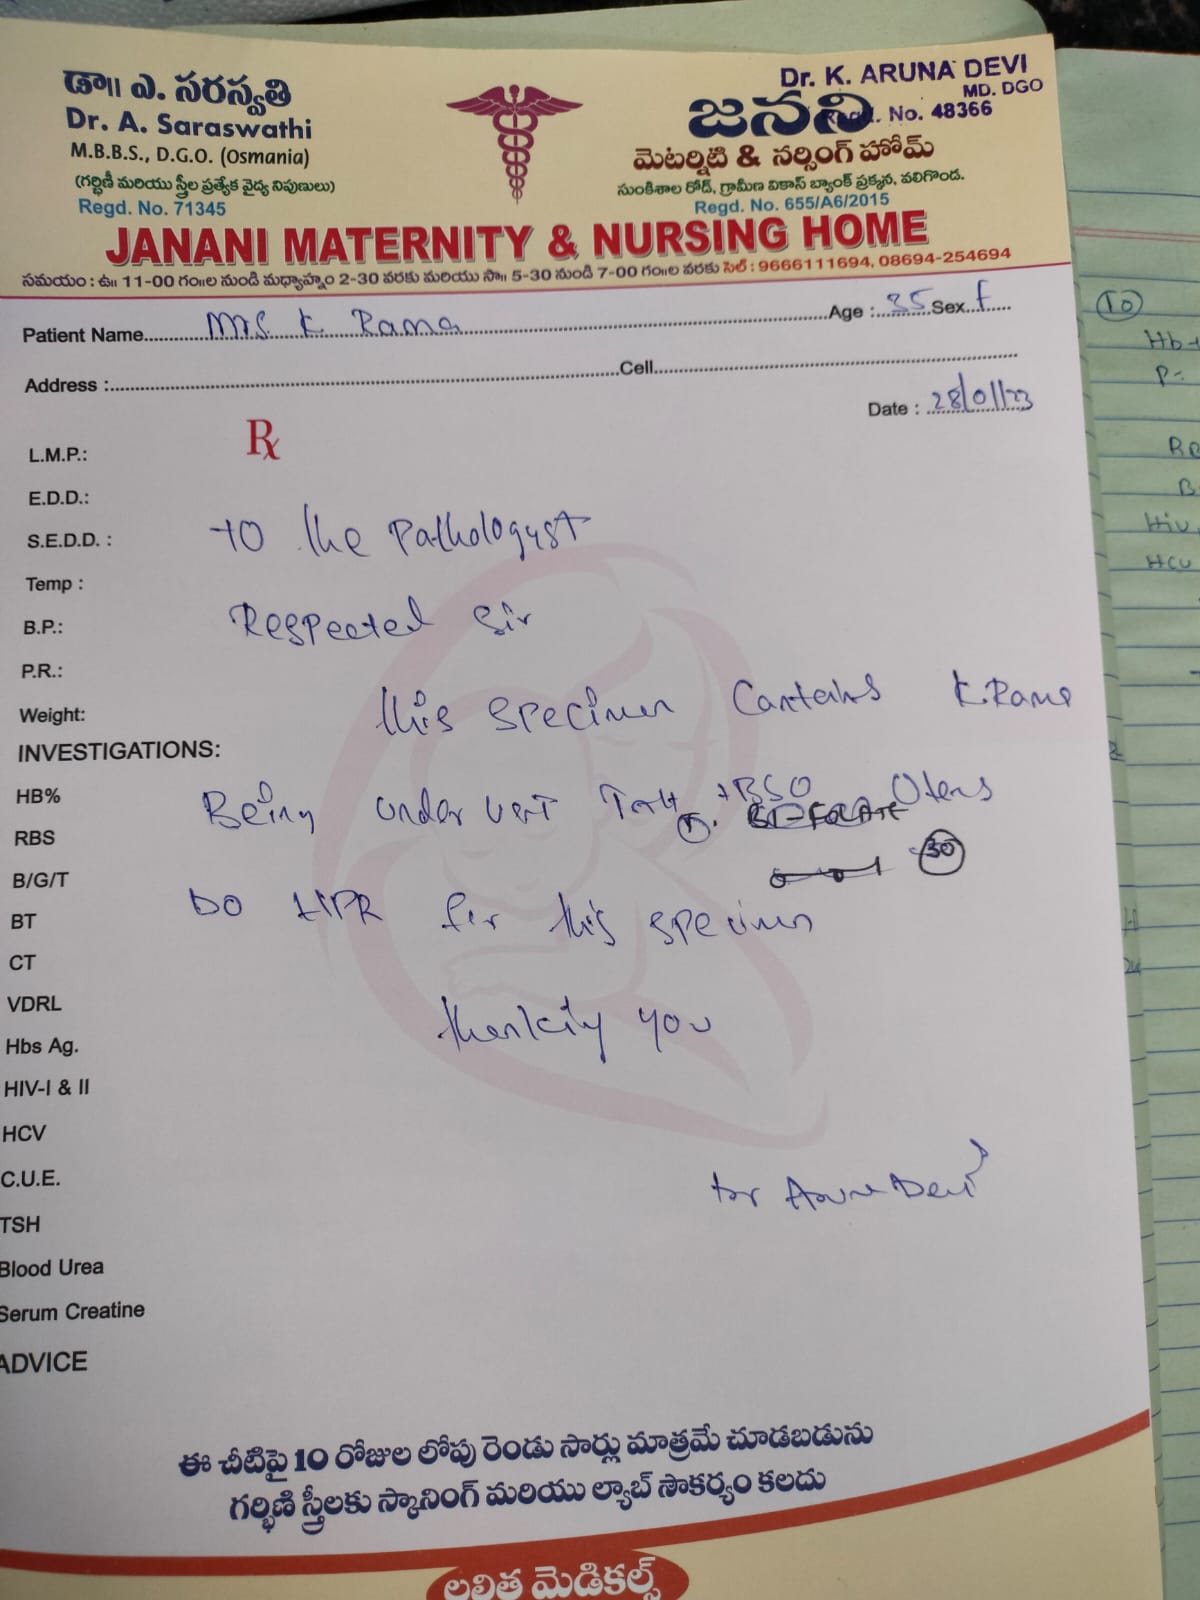 డా॥ ఎ. సరస్వతి
Dr. A. Saraswathi
M.B.B.S., D.G.O. (Osmania)
(గర్భిణీ మరియు స్త్రీల ప్రత్యేక వైద్య నిపుణులు)
Regd. No. 71345
Dr. K. ARUNA DEVI
MD. DGO
Regd. No. 48366
జనని
మెటర్నిటి & నర్సింగ్ హోమ్
సుంకిశాల రోడ్, గ్రామీణ వికాస్ బ్యాంక్ ప్రక్కన, వలిగొండ.
Regd. No. 655/A6/2015
JANANI MATERNITY & NURSING HOME
సమయం : ఉ॥ 11-00 గం॥ల నుండి మధ్యాహ్నం 2-30 వరకు మరియు సా॥ 5-30 నుండి 7-00 గం॥ల వరకు సెల్ : 9666111694, 08694-254694
Patient Name Mrs K Rama Age : 35 Sex F
Address : Cell
Date : 28/01/23
Rx
L.M.P.:
E.D.D.:
S.E.D.D. :
Temp :
B.P.:
P.R.:
Weight:
INVESTIGATIONS:
HB%
RBS
B/G/T
BT
CT
VDRL
Hbs Ag.
HIV-I & II
HCV
C.U.E.
TSH
Blood Urea
Serum Creatine
ADVICE
To the Pathologyst
Respected Sir
this specimen Contains K. Rama
Being under vent +BSO Uterus
30
DO HPR for this specimen
thanking you
for Aruna Devi
ఈ చీటిపై 10 రోజుల లోపు రెండు సార్లు మాత్రమే చూడబడును
గర్భిణి స్త్రీలకు స్కానింగ్ మరియు ల్యాబ్ సౌకర్యం కలదు
లలిత మెడికల్స్
10
Hb
P
B
Hiv
HCV